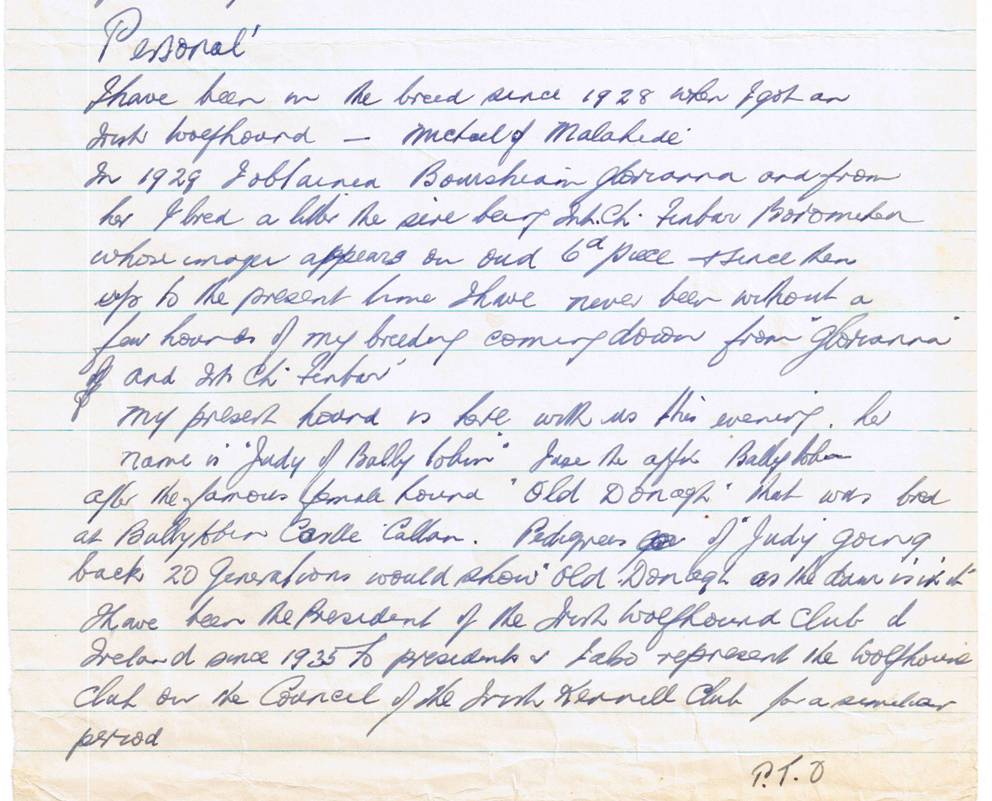 Personal'
I have been in the breed since 1928 when I got an
Irish Wolfhound — of Malahide
In 1929 I obtained Glorianna and from
her I bred a litter the sire being Int. Ch. Finbar Boromhen
whose image appears on oud 6d piece + since then
up to the present time I have never been without a
few hounds of my breeding coming down from "Glorianna"
and Int Ch. Finbar'
My present hound is here with us this evening. her
name is "Judy of Ballytobin" I use the affix Ballytobin
after the famous female hound "Old Donagh" that was bred
at Ballytobin Castle Callan. Pedigrees of "Judy going
back 20 Generations would show "Old Donagh as the dam
I have been the President of the Irish Wolfhound Club
Ireland since 1935 to present I also represent the Wolfhound
Club on the Council of the Irish Kennell Club for a similar
period
P.T.O